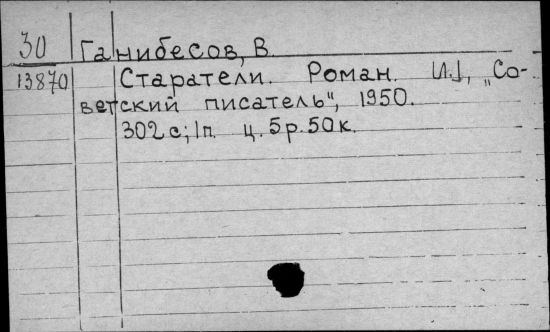 30 Ганибесов, В
13870 Старатели. Роман. М., „Со-
ветский писатель", 1950.
302 с; 1 п. ц. 5 р. 50 к.